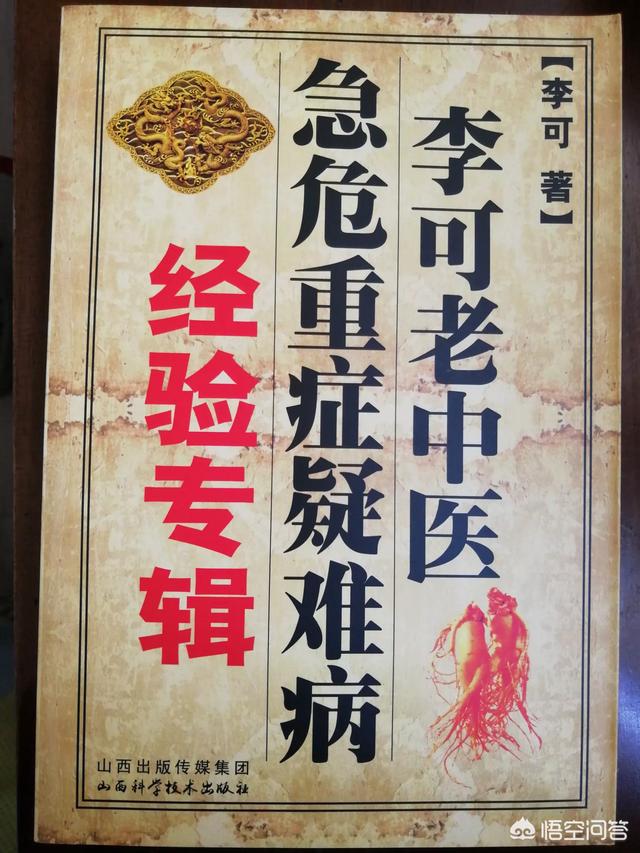 【李可 著】
李可老中医
急危重症疑难病
经验专辑
山西出版传媒集团
山西科学技术出版社
悟空问答